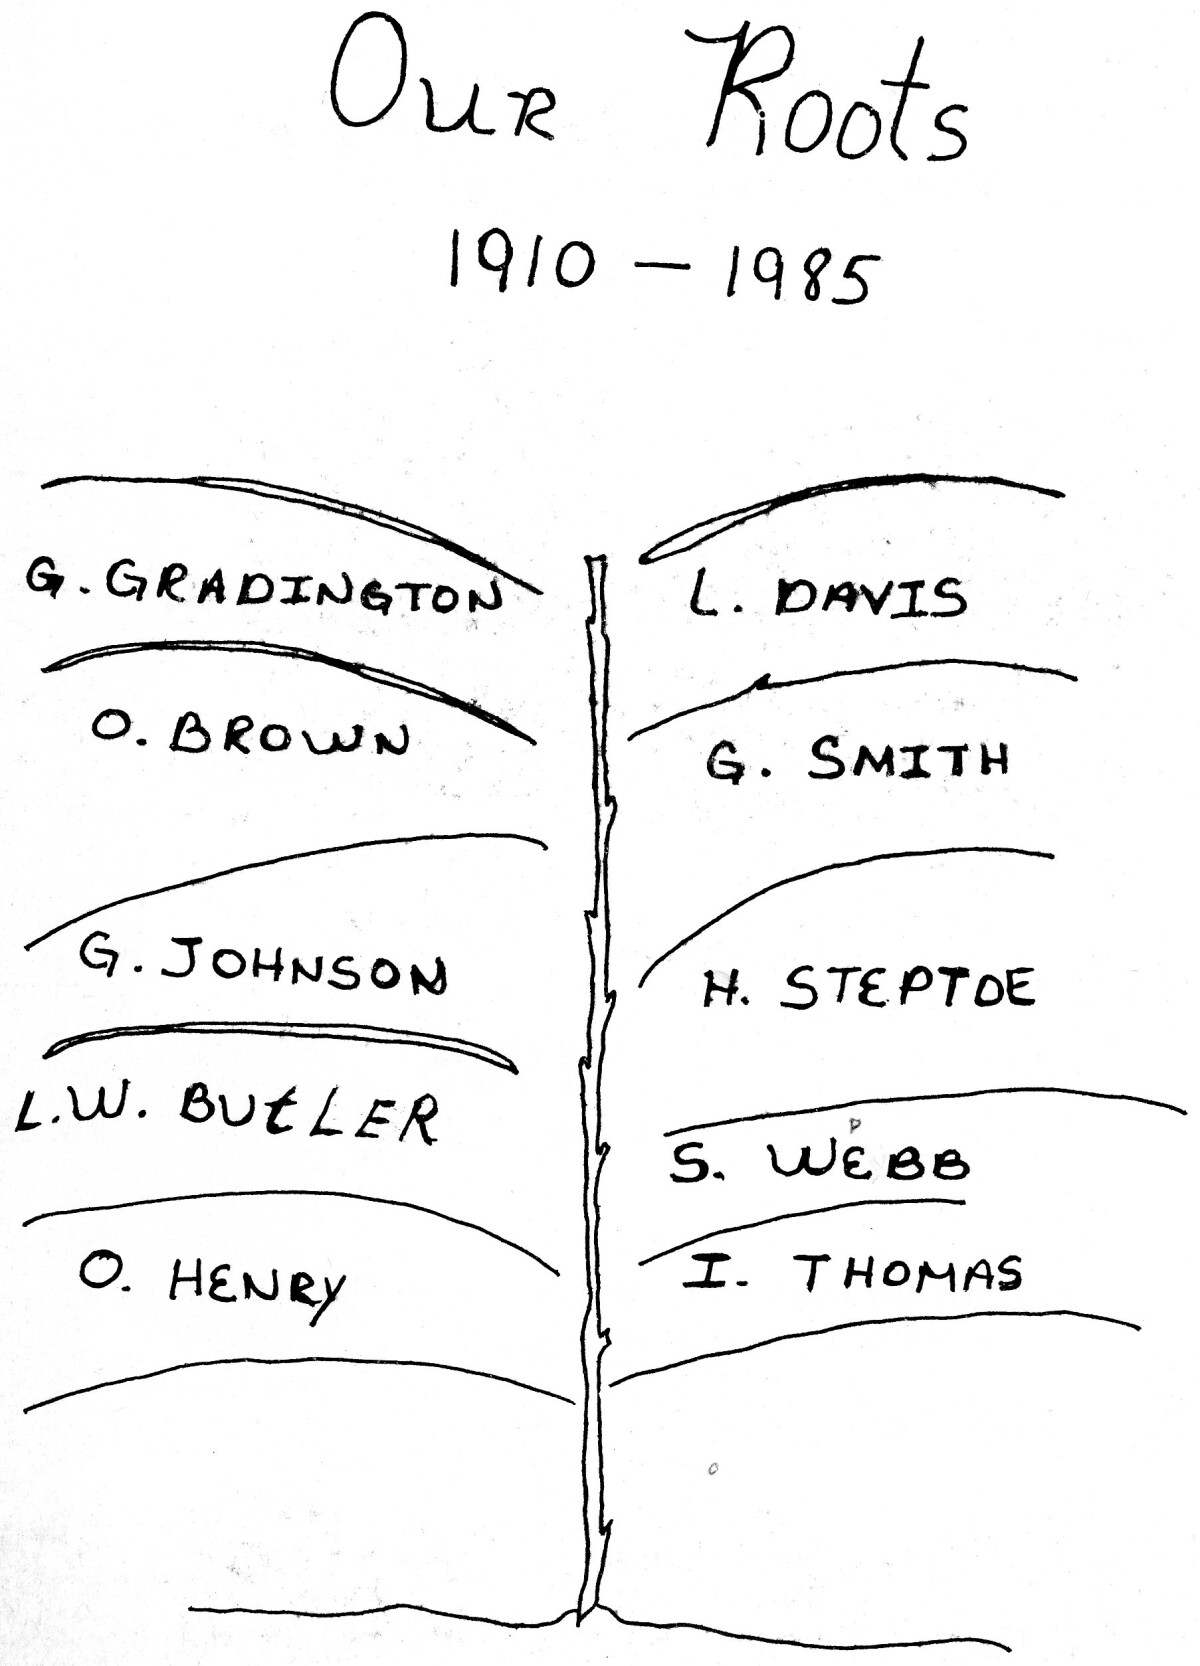 Our Roots
1910 – 1985
G. GRADINGTON
L. DAVIS
O. BROWN
G. SMITH
G. JOHNSON
H. STEPTOE
L.W. BUtLER
S. WEBB
O. HENRY
I. THOMAS